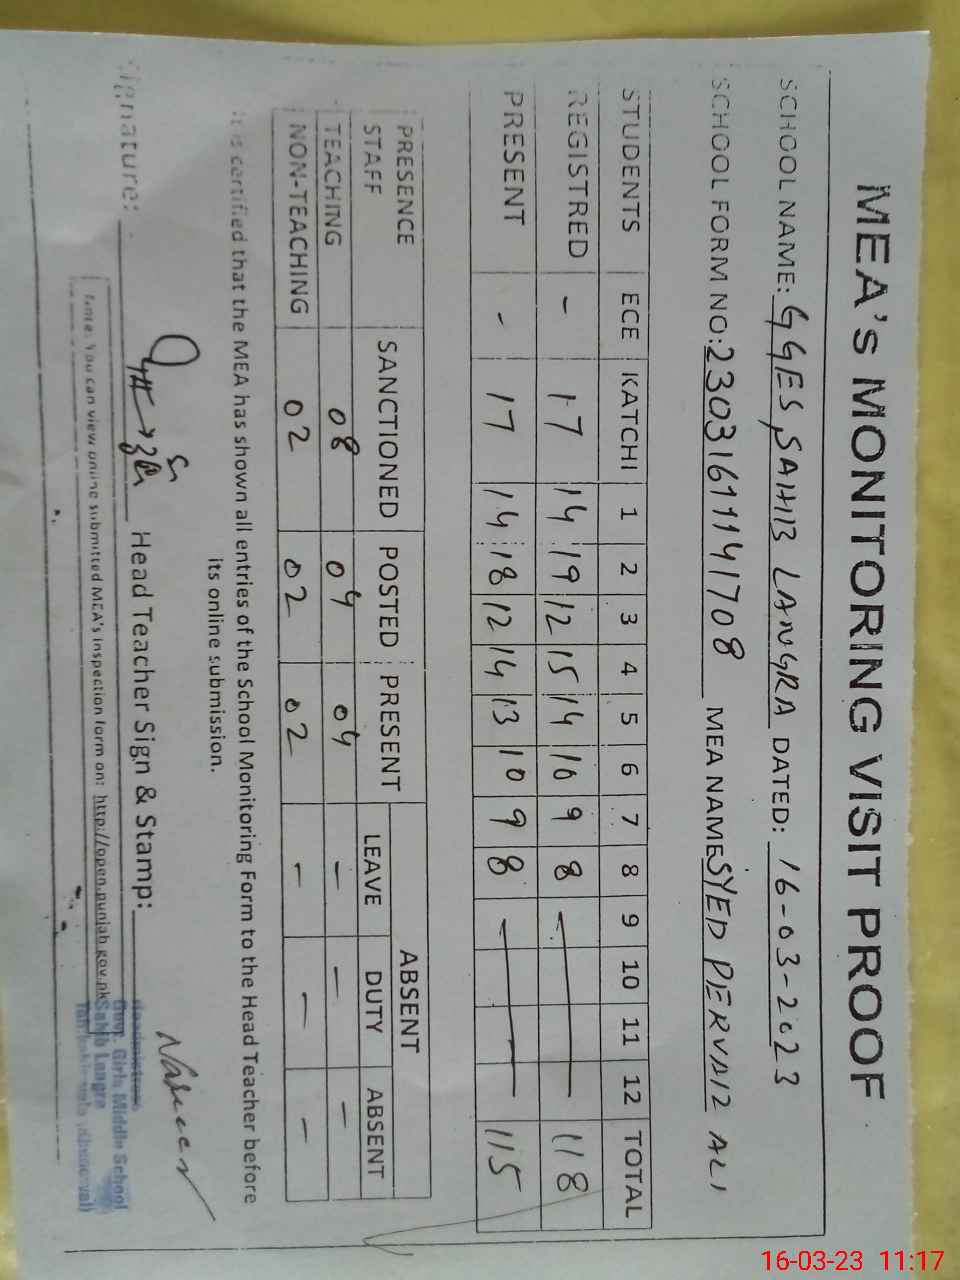 MEA's MONITORING VISIT PROOF
SCHOOL NAME: GGES, SAHIB LANGRA DATED: 16-03-2023
SCHOOL FORM NO: 23031611141708 MEA NAME SYED PERVAIZ ALI
STUDENTS ECE KATCHI 1 2 3 4 5 6 7 8 9 10 11 12 TOTAL
REGISTRED - 17 14 19 12 15 14 10 9 8 — 118
PRESENT - 17 14 18 12 14 13 10 9 8 — 115
PRESENCE SANCTIONED POSTED PRESENT ABSENT
STAFF LEAVE DUTY ABSENT
TEACHING 08 04 04 - - -
NON-TEACHING 02 02 02 - - -
It is certified that the MEA has shown all entries of the School Monitoring Form to the Head Teacher before
its online submission.
Signature: Head Teacher Sign & Stamp:
Note: You can view online submitted MEA's Inspection form on: http://open.punjab.gov.pk
Headmistress
Govt. Girls Middle School
Sahib Langra
16-03-23 11:17